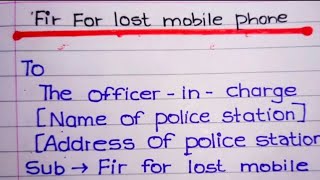 Fir For lost mobile phone
To
The officer-in-charge
[Name of police station]
[Address of police station
Sub → Fir for lost mobile